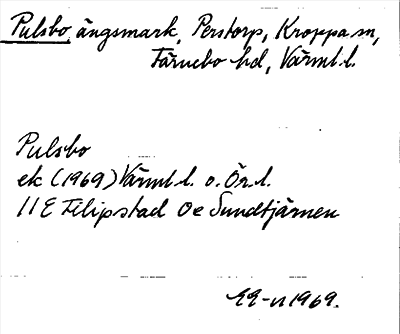 Pulsbo, ängsmark, Perstorp, Kroppa sn,
Färnebo hd, Värml. l.
Pulsbo
ek (1969) Värml. l. o. Ör. l.
11 E Filipstad 0e Sundtjärnen
1969.